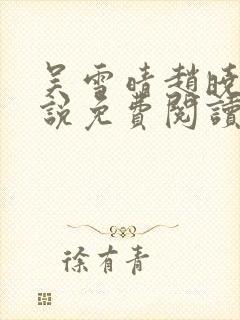 吴雪晴趙曉
說免費閱讀
徐有青